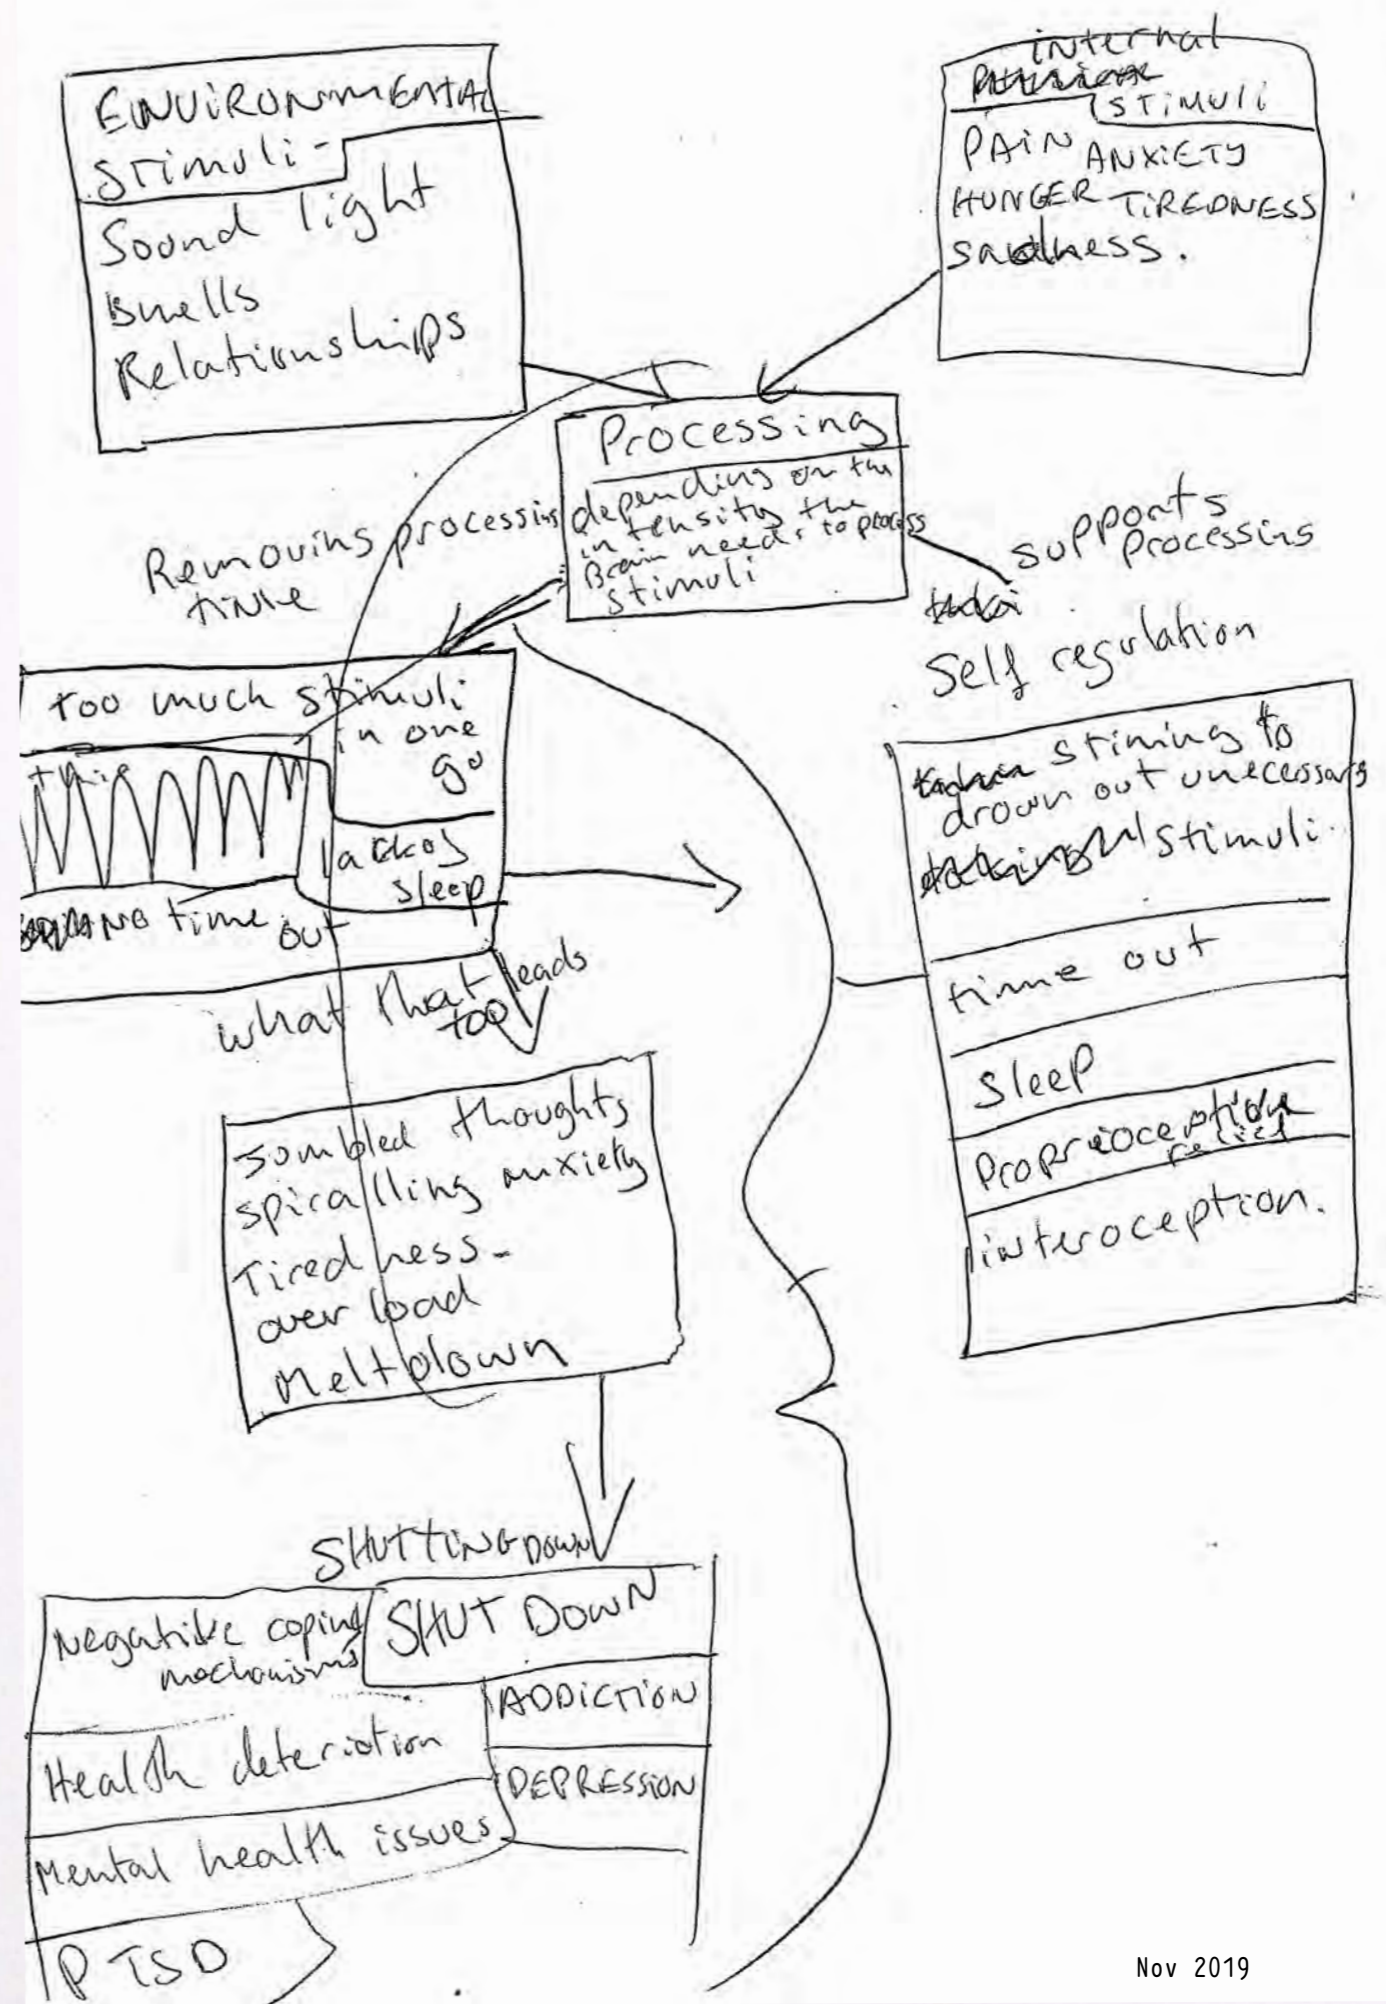 ENVIRONMENTAL
Stimuli -
Sound light
Smells
Relationships
internal
STIMULI
PAIN ANXIETY
HUNGER TIREDNESS
sadness.
Processing
depending on the
intensity the
Brain needs to process
stimuli
Removing processing
time
supports
processing
Self regulation
too much stimuli
in one
go
lack of
sleep
time out
what that leads
too
stiming to
drown out unecessary
stimuli.
time out
Sleep
Proprioception
relief
interoception.
Jumbled thoughts
spiralling anxiety
Tiredness -
over load
Meltdown
SHUTTING DOWN
SHUT DOWN
Negative coping
mechanisms
ADDICTION
Health deteriotion
DEPRESSION
Mental health issues
PTSD
Nov 2019